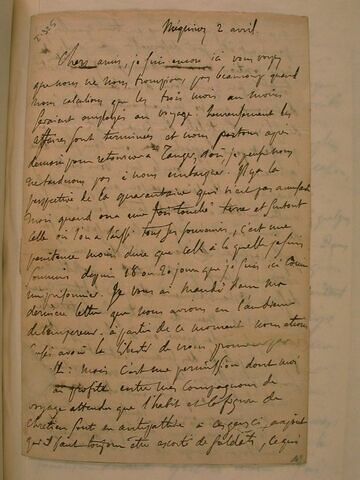 Méquinez 2 avril.
Chers amis, je suis encore ici vous voyez
que nous ne nous trompions pas beaucoup quand
nous calculions que les trois mois au moins
seraient employés au voyage. heureusement les
affaires sont terminées et nous partons après
demain pour retourner à Tanger, d'où je pense nous
ne tarderons pas à nous embarquer. Il y a la
perspective de la quarantaine qui n'est pas amusante
mais quand on a une fois touché terre et surtout
celle où l'on a laissé tous ses souvenirs, c'est une
pénitence moins dure que celle à laquelle je suis
soumis depuis 18 ou 20 jours que je suis ici comme
un prisonnier. Je vous ai mandé dans ma
dernière lettre que nous avions eu l'audience
de l'empereur. à partir de ce moment nous étions
censés avoir la liberté de nous promener par
la : mais c'est une permission dont moi
ai profité entre mes compagnons de
voyage attendu que l'habit et la figure de
chrétien sont en antipathie à ces gens ci, au point
qu'il faut toujours être escorté de soldats, ce qui